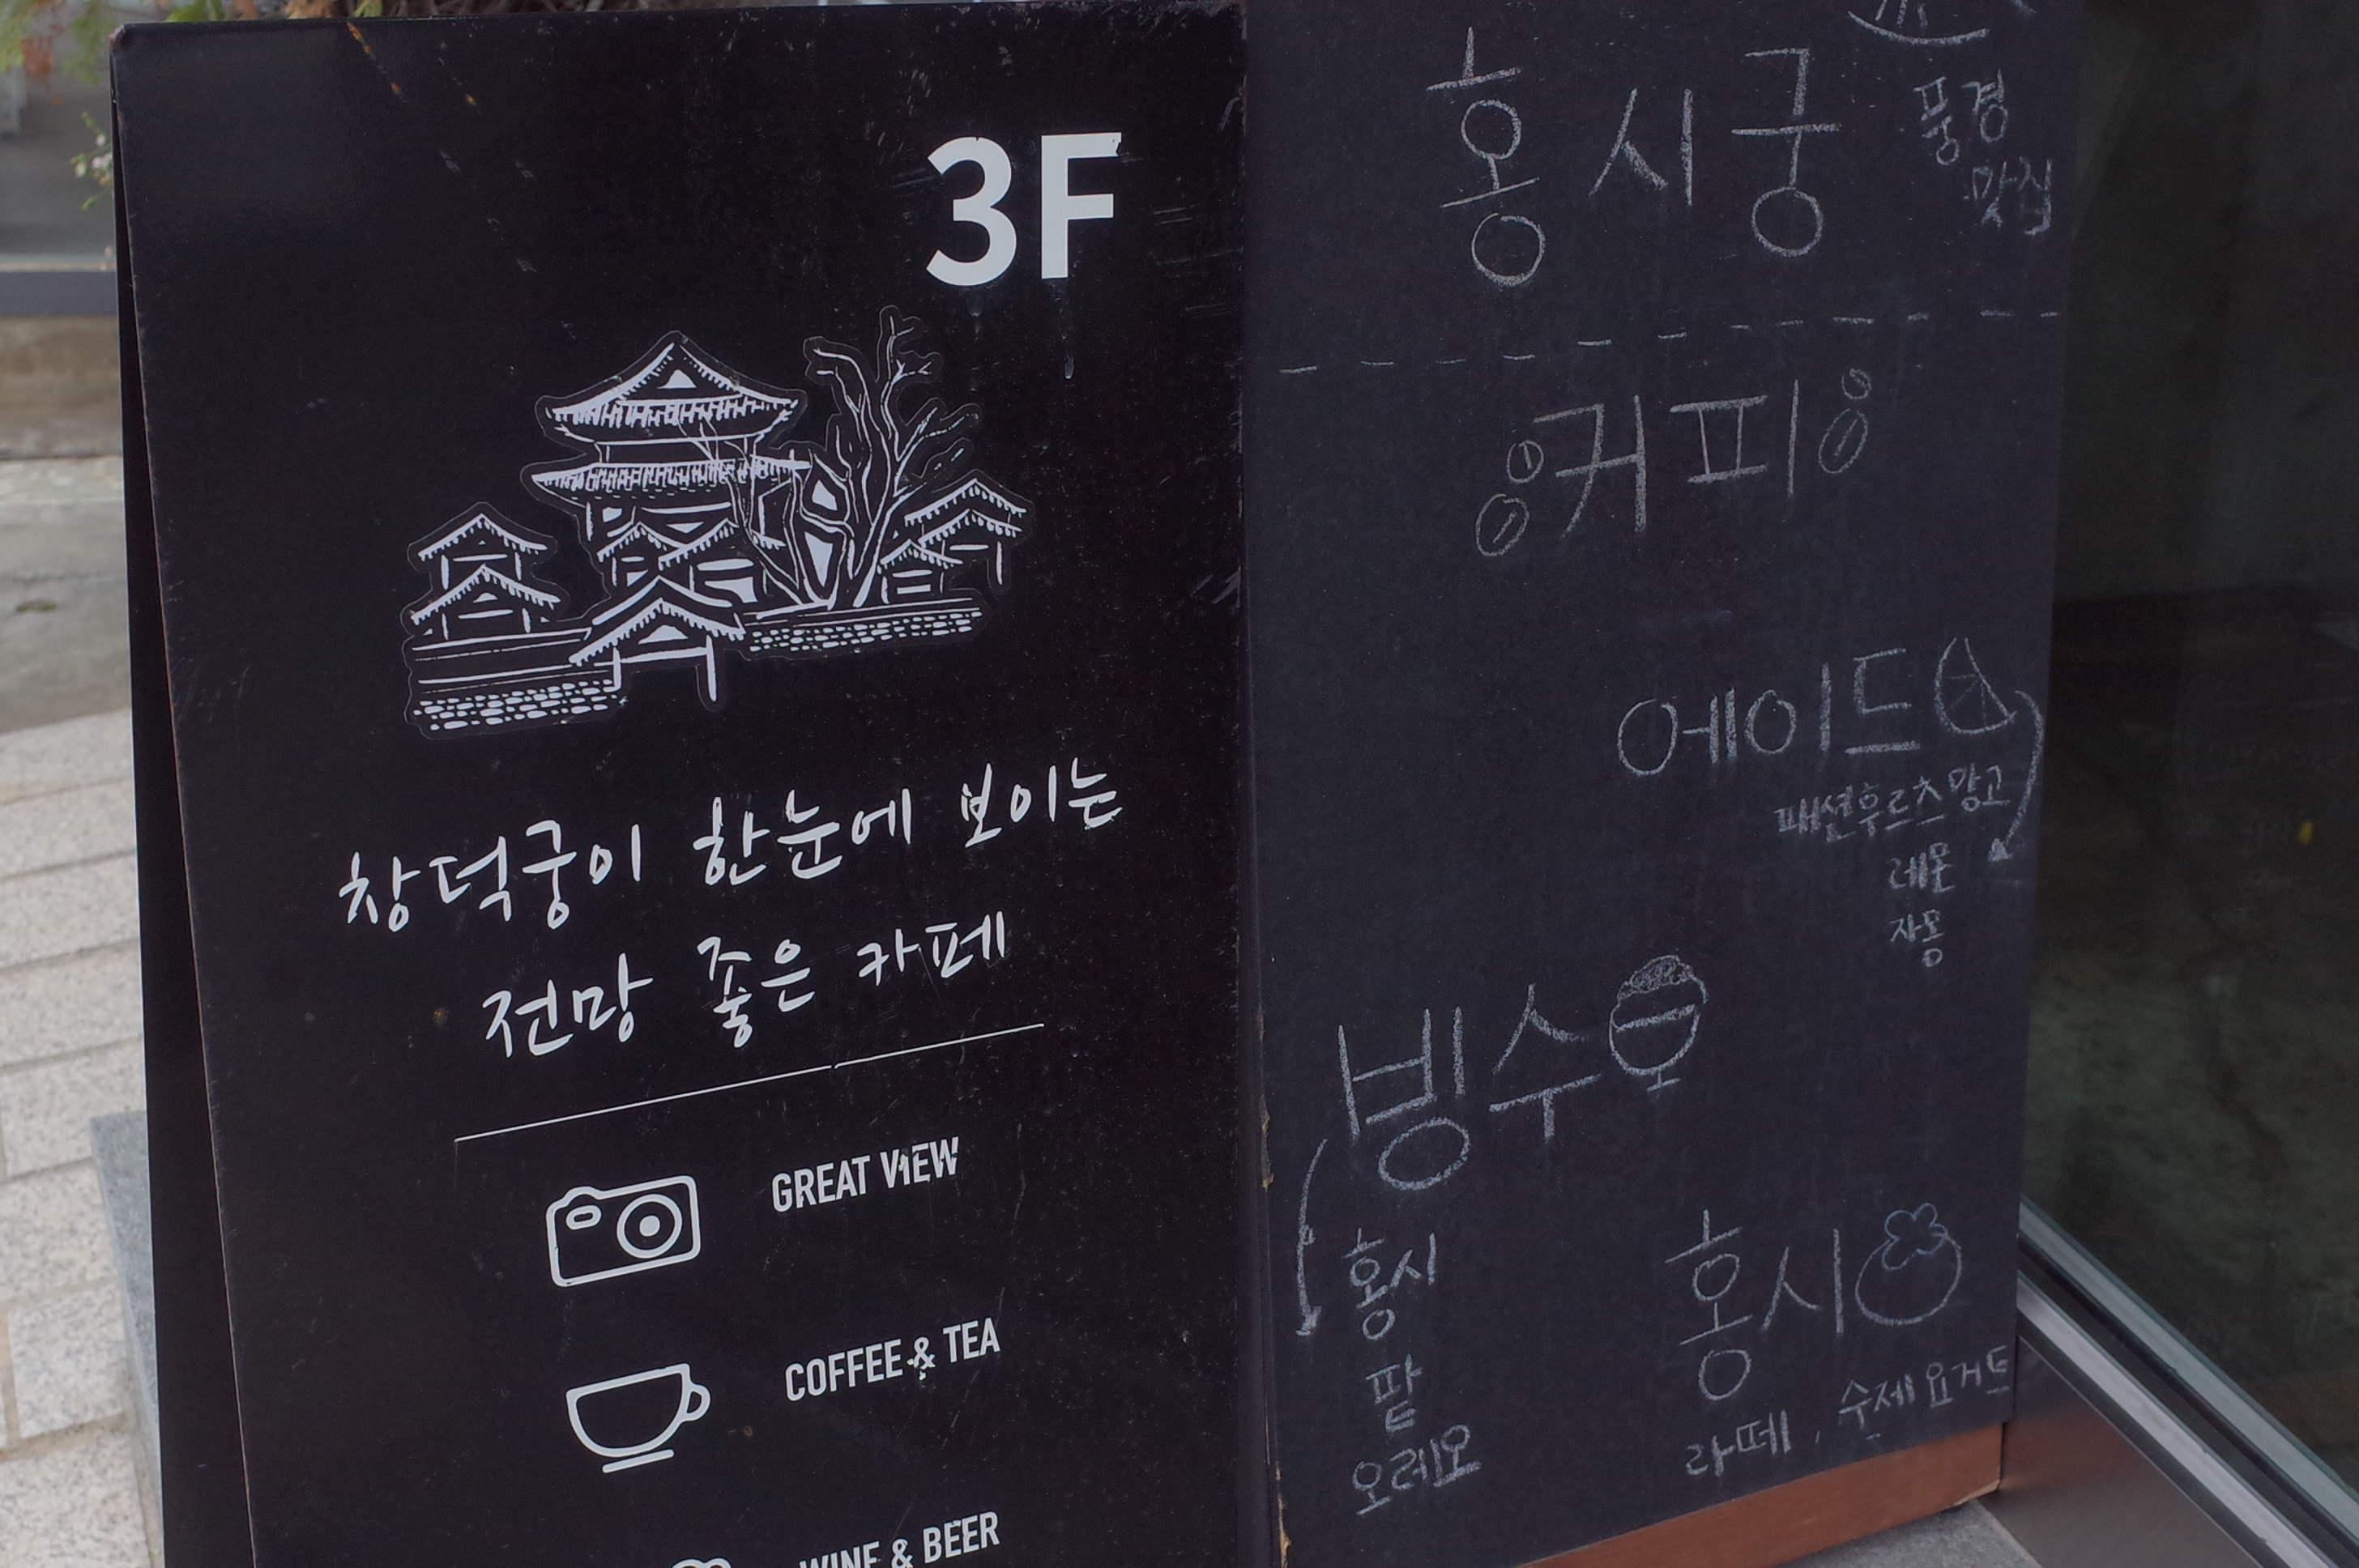 3F
창덕궁이 한눈에 보이는
전망 좋은 카페
GREAT VIEW
COFFEE & TEA
WINE & BEER
홍시궁
풍경
맛집
커피
에이드
패션후르츠망고
레몬
자몽
빙수
홍시
팥
오레오
홍시
라떼, 수제요거트